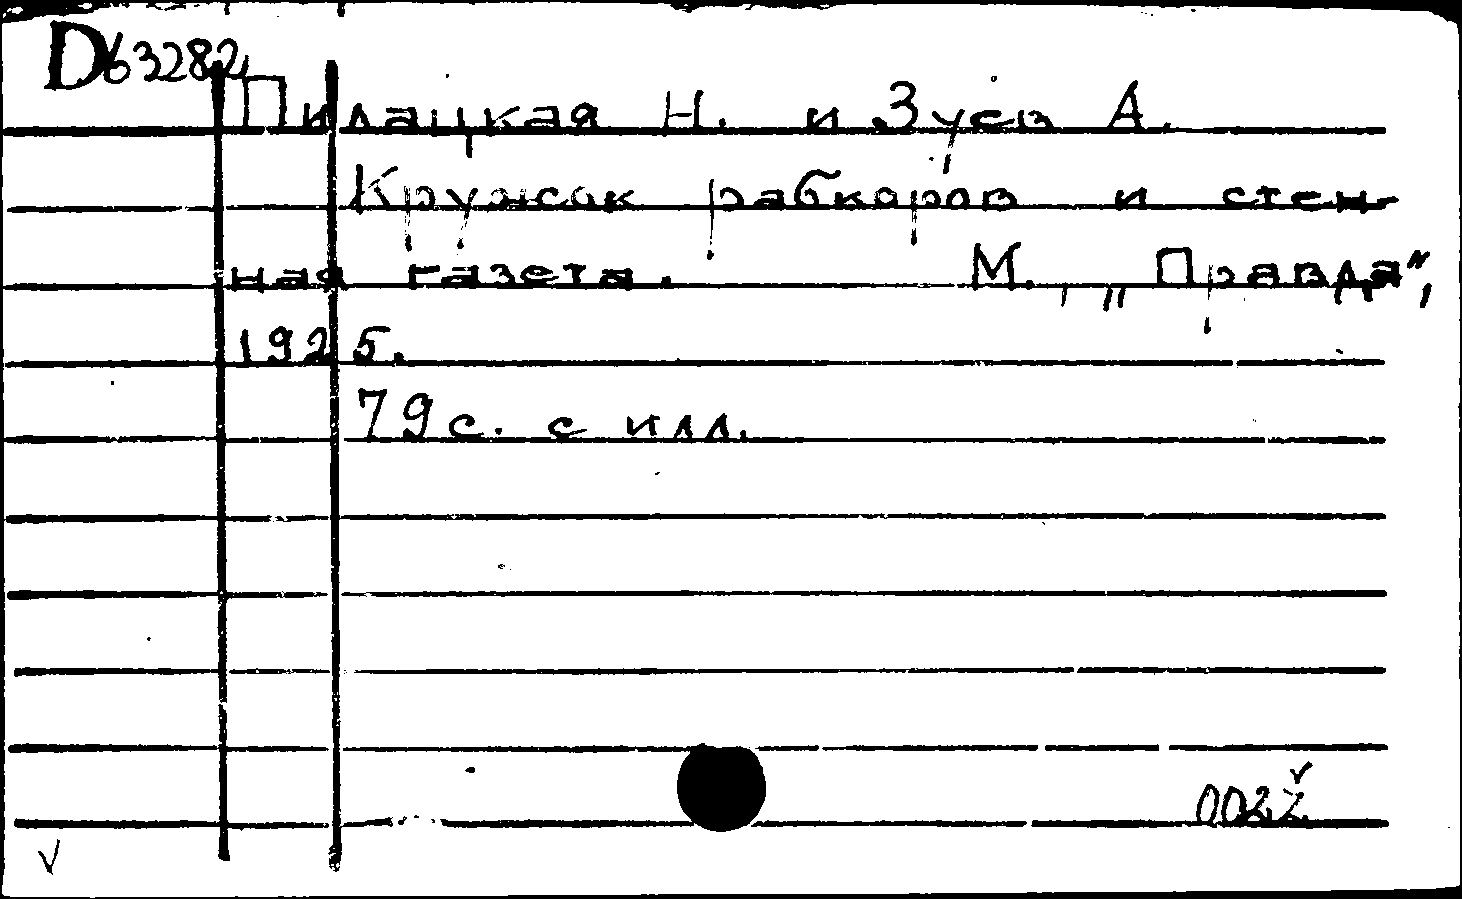 D63282
Пилацкая Н. и Зуев А.
Кружок рабкоров и стен-
ная газета. М., „Правда",
1925.
79с. с илл.